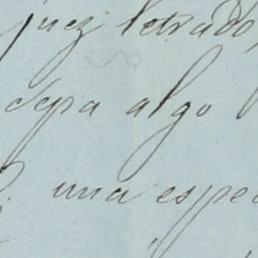 juez letrado,
sepa algo
una espec